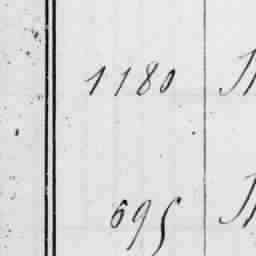 1180
695